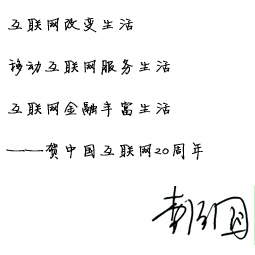 互联网改变生活
移动互联网服务生活
互联网金融丰富生活
——贺中国互联网20周年